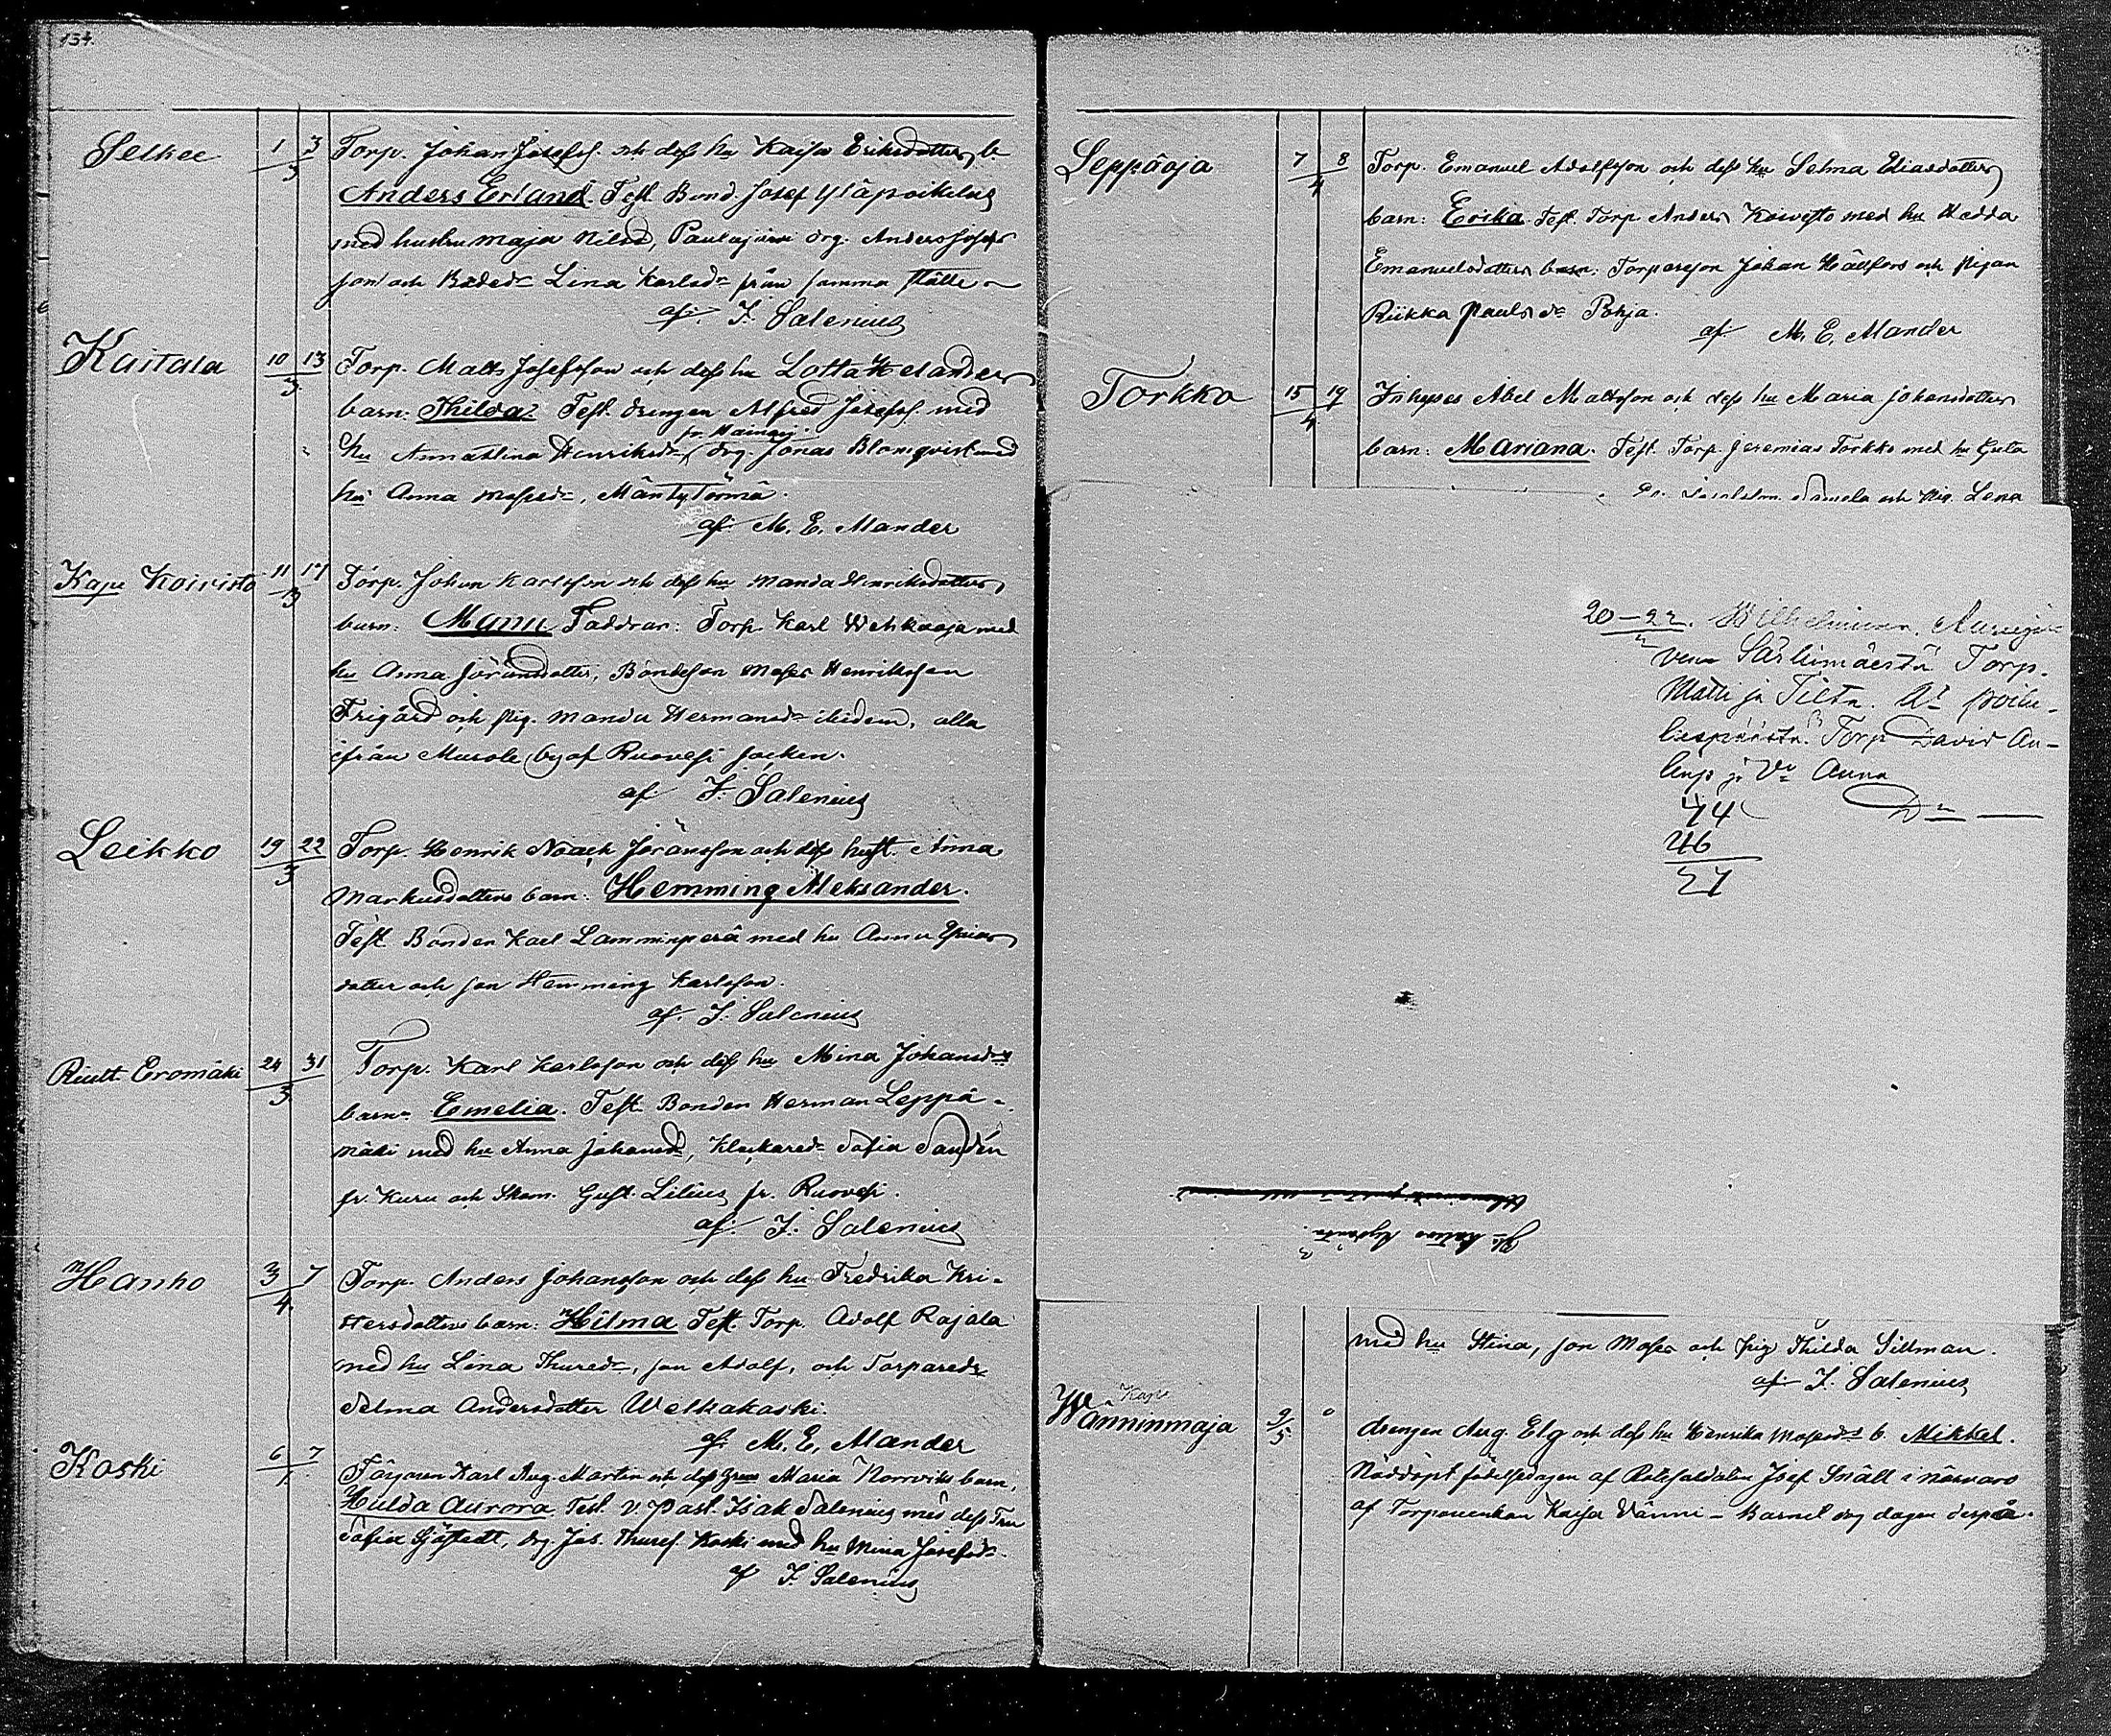 134.
Selkee 1 3/3 Torp. Johan Josefss. och dess hu Kaisa Eriksdotters b.
Anders Erland. Test. Bond. Josef Yläpoikelus
med hustru Maja Nilsd, Paulajärvi drg. Anders Josefs
son och Bded. Lina Karlsdr från samma ställe
af. I. Salenius
Kaitala 10 13/3 Torp. Matts Josefsson och dess hu Lotta Helanders
barn: Thilda. Test. drengen Alfred Josefss. med
hu Anna Stina Henriksdr, drg. Jonas Blomqvist med
hu Anna Mosesdr, Mäntytörmä.
af. M. E. Mander
Kape Koivisto 11 17/3 Torp. Johan Karlsson och dess hu Manda Henriksdotters
barn. Mannu Faddrar: Torp. Karl Wehkaoja med
hu Anna Jöransdotter, Bondeson Moses Henriksson
Frigård och pig. Manda Hermansdr ibidem, alla
ifrån Murole by af Ruovesi socken.
af I. Salenius
Leikko 19 22/3 Torp. Henrik Noach Jöransson och dess hust. Anna
Markusdotters barn: Hemming Aleksander.
Test. Bonden Karl Lamminperä med hu Anna
dotter och son Hemming Karlsson.
af. I. Salenius
Riutt. Eromäki 24 31/3 Torp. Karl Karlsson och dess hu Mina Johansdrs
barn Emelia. Test. Bonden Herman Leppä-
mäki med hu Anna Johansdr, Klockaredr Sofia Sandén
fr. Kuru och Skom. Gust. Lilius fr. Ruovesi.
af. I. Salenius
Hanho 3 7/4 Torp. Anders Johansson och dess hu Fredrika Kri-
stersdotters barn: Hilma Test. Torp. Adolf Rajala
med hu Lina Thuredr, son Adolf, och Torparedr
Selma Andersdotter Welhakoski.
af. M. E. Mander
Koski 6 7/ Färgaren Karl Aug. Martin och dess Fru Maria Norrviks barn,
Hulda Aurora. Test. V. Past. Isak Salenius med dess Fru
Sofia Sjöstedt, drg. Jos. Thuress. Koski med hu Mina Josefsdr.
af I. Salenius
Leppäoja 7 8/4 Torp. Emanuel Adolfsson och dess hu Selma Eliasdotters
barn: Erika. Test. Torp. Anders Koivisto med hu Hedda
Emanuelsdotters barn: Torpareson Johan Hällfors och pigan
Riikka Paulsdr Pohja.
af M. E. Mander
Torkko 15 19/4 Inhyses Abel Mattsson och dess hu Maria Johansdotters
barn: Mariana. Test. Torp. Jeremias Torkko med hu Greta
och pig. Lena
20–22. Wilhelmiina.
Särkimäestä Torp.
Matti ja Tilta.
Torp David
ja Vo Anna
44
46
27
med hu Stina, son Moses och pig Thilda Sillman.
af I. Salenius
Kape
Wänninmaja 9/5 drengen Aug. Elg och dess hu Henrika Mosesdrs b. Mikkel.
Nöddöpt födelsedagen af Rotesoldaten Josef Snäll i närvaro
af Torpareenkan Kaisa Vänni – Barnet dog dagen derpå.